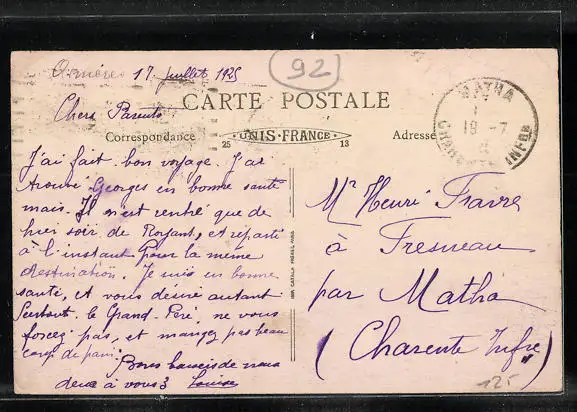 Asnières 17 juillet 1925
92
CARTE POSTALE
Correspondance
UNIS-FRANCE
25
13
Adresse
MATHA
18-7
CHARENTE INFRE
Chers Parents
J'ai fait bon voyage. J'ai
trouvé Georges en bonne santé
mais. Il n'est rentré que de
hier soir de Royant, et reparti
à l'instant pour la même
destination. Je suis en bonne
santé, et vous désire autant
surtout le Grand-Père, ne vous
forcez pas, et mangez pas beau
coup de pain.
Bons baisers de nous
deux à vous 3 Louise
IMP. CATALA FRÈRES, PARIS
Mr Henri Favre
à Fresneau
par Matha
(Charente Infre)
125